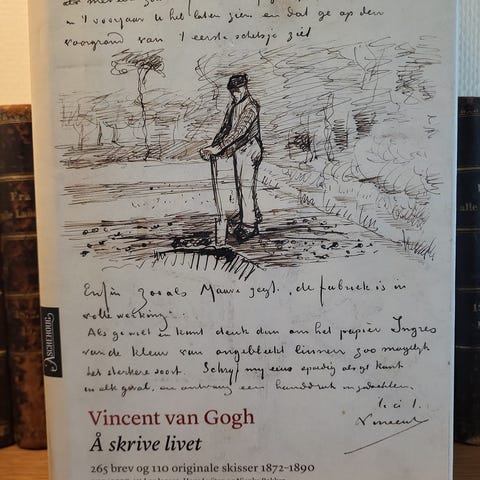 in 't voorjaar U het laten zien en dat ge op den
voorgrond van 't eerste schetsje ziet
Enfin zooals Mauve zegt, de fabriek is in
volle werking.
Als ge wilt en kunt denk dan om het papier Ingres
van de kleur van ongebleekt linnen zoo mogelijk
het sterkere soort. Schrijf my eens spoedig als ge kunt
en in elk geval, en ontvang een handdruk in gedachten
t. à t.
Vincent
ASCHEHOUG
Vincent van Gogh
Å skrive livet
265 brev og 110 originale skisser 1872–1890